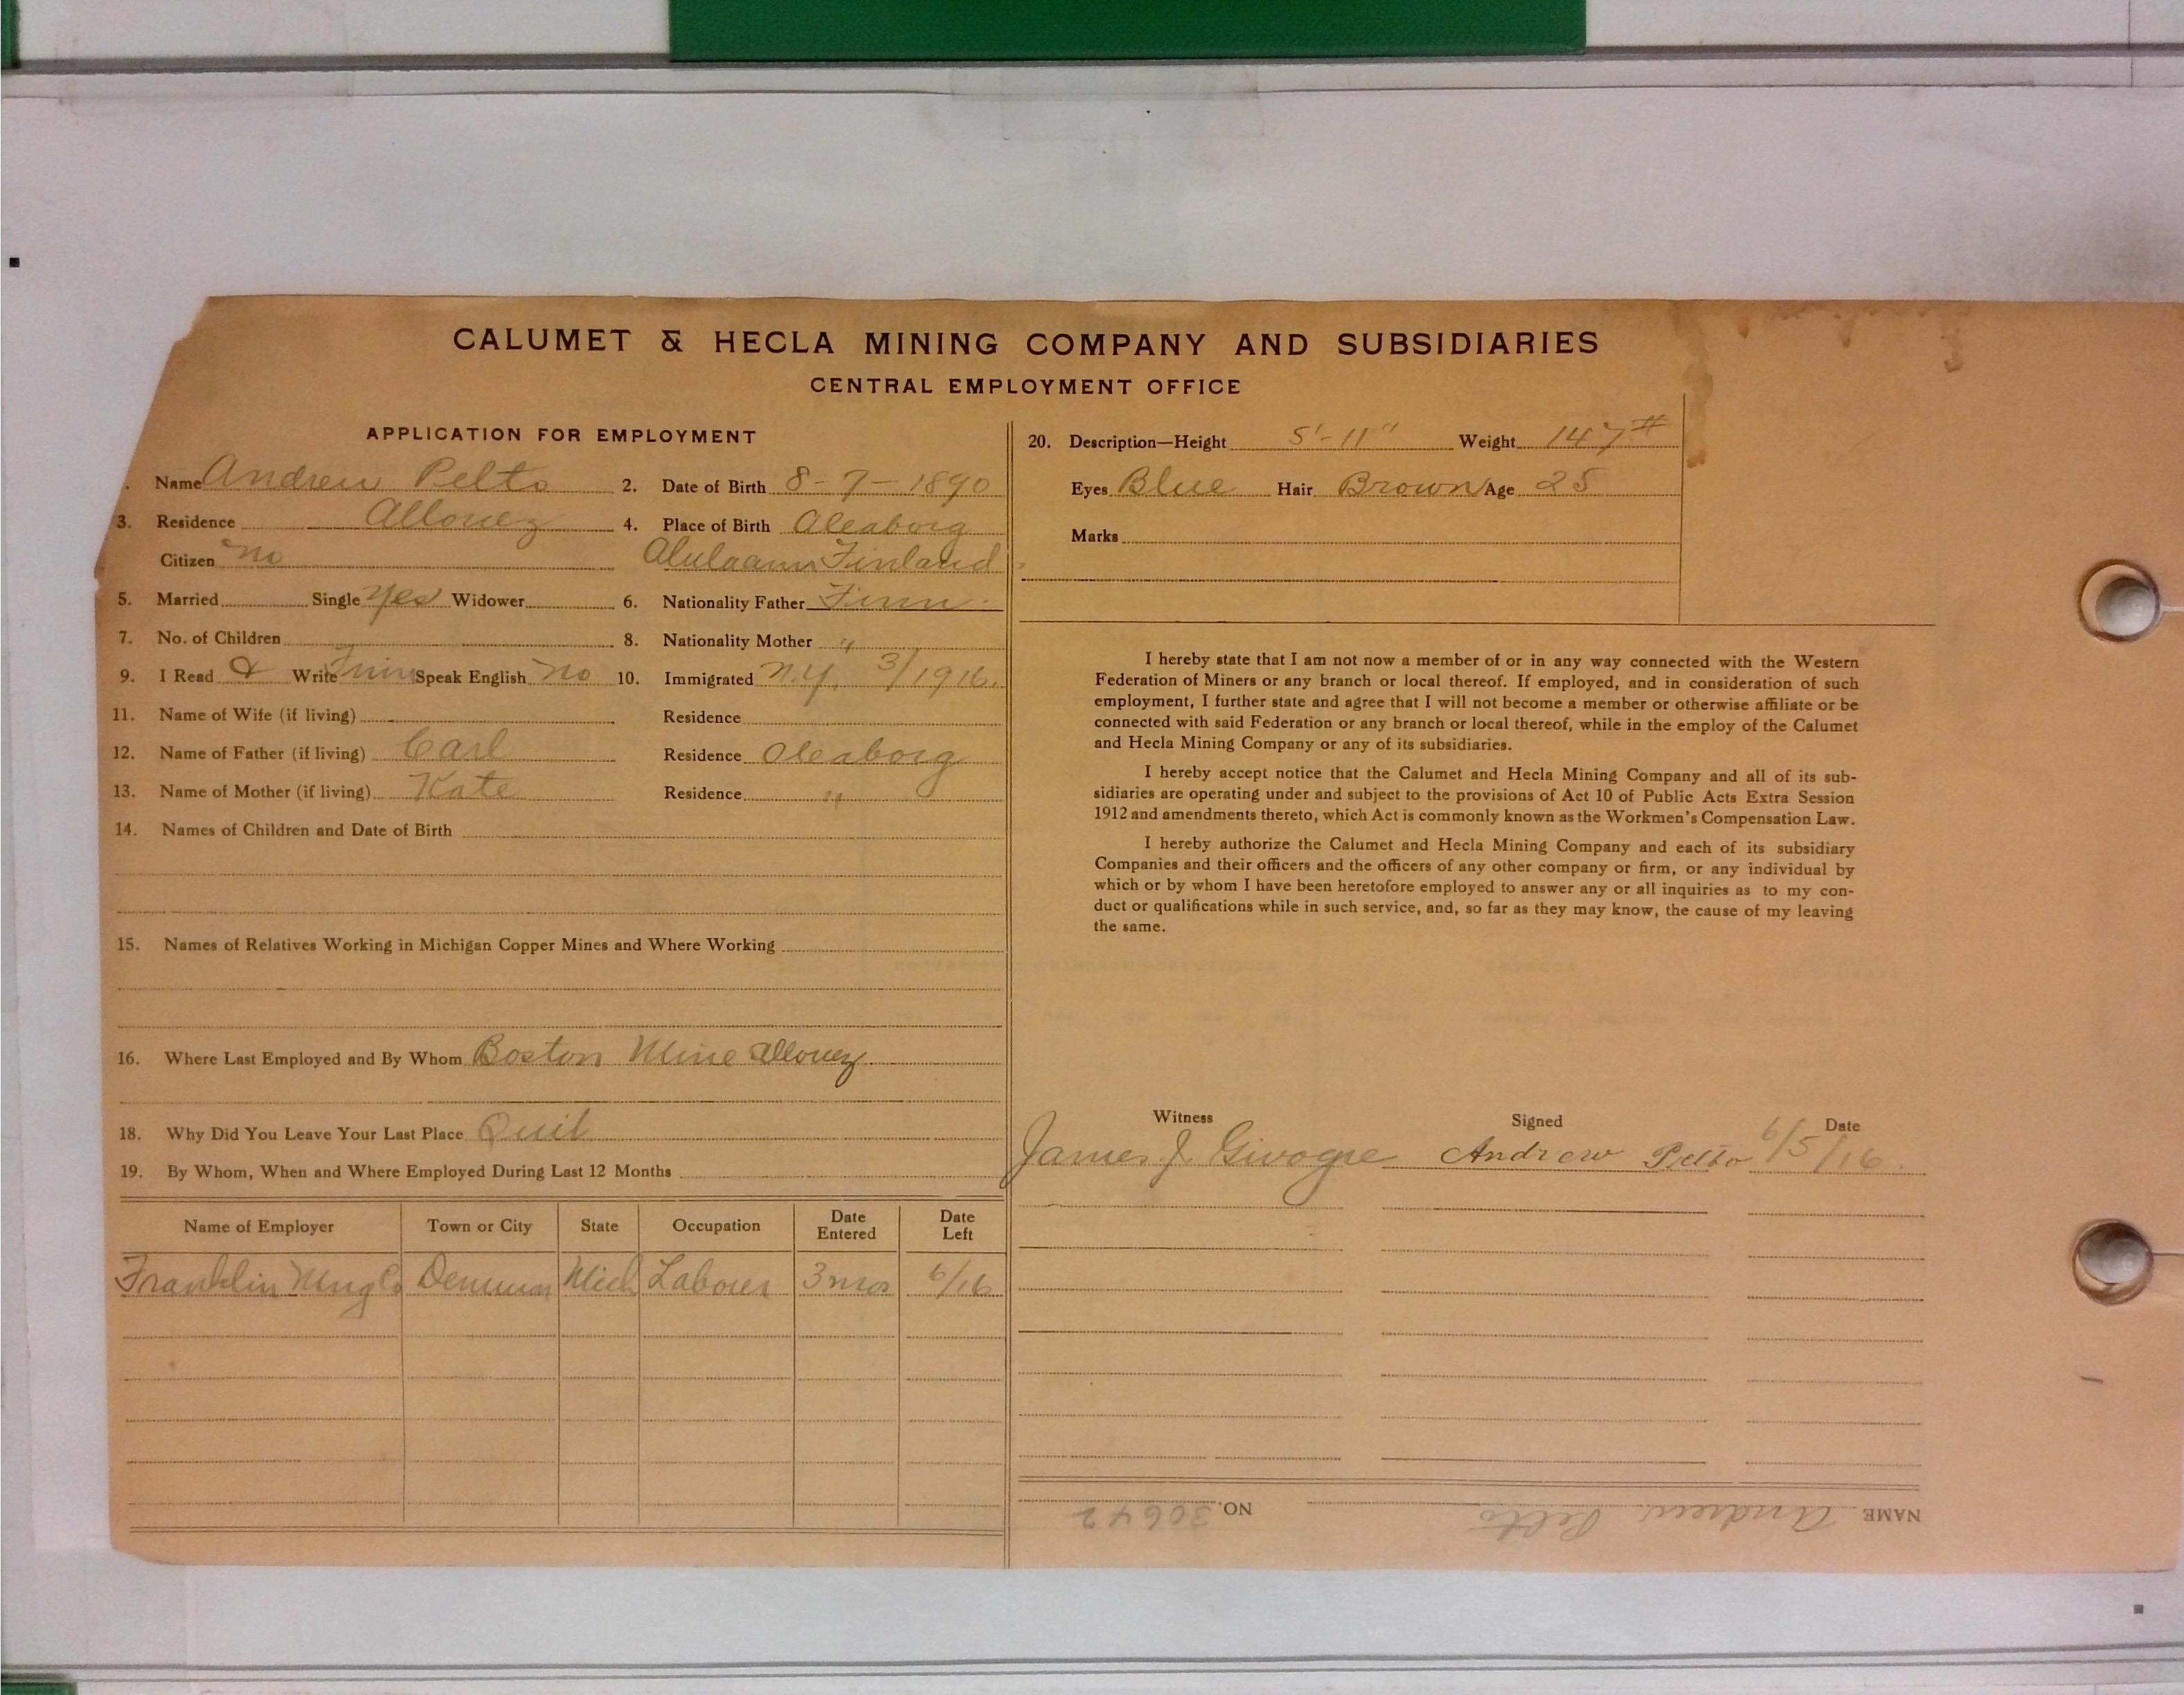 CALUMET & HECLA MINING COMPANY AND SUBSIDIARIES
CENTRAL EMPLOYMENT OFFICE
APPLICATION FOR EMPLOYMENT
. Name Andrew Pelto 2. Date of Birth 8-7-1890
3. Residence Allouez 4. Place of Birth Oleaborg
Citizen no Finland
5. Married Single Yes Widower 6. Nationality Father Finn
7. No. of Children 8. Nationality Mother "
9. I Read & Write Finn Speak English no 10. Immigrated N.Y. 3/1916.
11. Name of Wife (if living) Residence
12. Name of Father (if living) Carl Residence Oleaborg
13. Name of Mother (if living) Kate Residence "
14. Names of Children and Date of Birth
15. Names of Relatives Working in Michigan Copper Mines and Where Working
16. Where Last Employed and By Whom Boston Mine Allouez
18. Why Did You Leave Your Last Place Quit
19. By Whom, When and Where Employed During Last 12 Months
Name of Employer Town or City State Occupation Date Entered Date Left
Franklin Mng Co Demmon Mich Laborer 3 mos 6/16
20. Description—Height 5'-11" Weight 147#
Eyes Blue Hair Brown Age 25
Marks
I hereby state that I am not now a member of or in any way connected with the Western
Federation of Miners or any branch or local thereof. If employed, and in consideration of such
employment, I further state and agree that I will not become a member or otherwise affiliate or be
connected with said Federation or any branch or local thereof, while in the employ of the Calumet
and Hecla Mining Company or any of its subsidiaries.
I hereby accept notice that the Calumet and Hecla Mining Company and all of its sub-
sidiaries are operating under and subject to the provisions of Act 10 of Public Acts Extra Session
1912 and amendments thereto, which Act is commonly known as the Workmen's Compensation Law.
I hereby authorize the Calumet and Hecla Mining Company and each of its subsidiary
Companies and their officers and the officers of any other company or firm, or any individual by
which or by whom I have been heretofore employed to answer any or all inquiries as to my con-
duct or qualifications while in such service, and, so far as they may know, the cause of my leaving
the same.
Witness Signed Date
James J. Andrew Pelto 6/5/16.
NAME Andrew Pelto NO. 30642